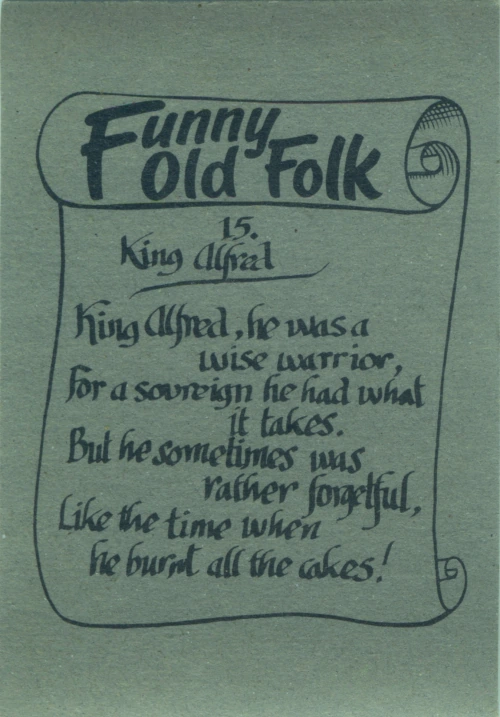 Funny
Old Folk
15.
King Alfred
King Alfred, he was a
wise warrior,
For a sovreign he had what
it takes.
But he sometimes was
rather forgetful,
Like the time when
he burnt all the cakes!